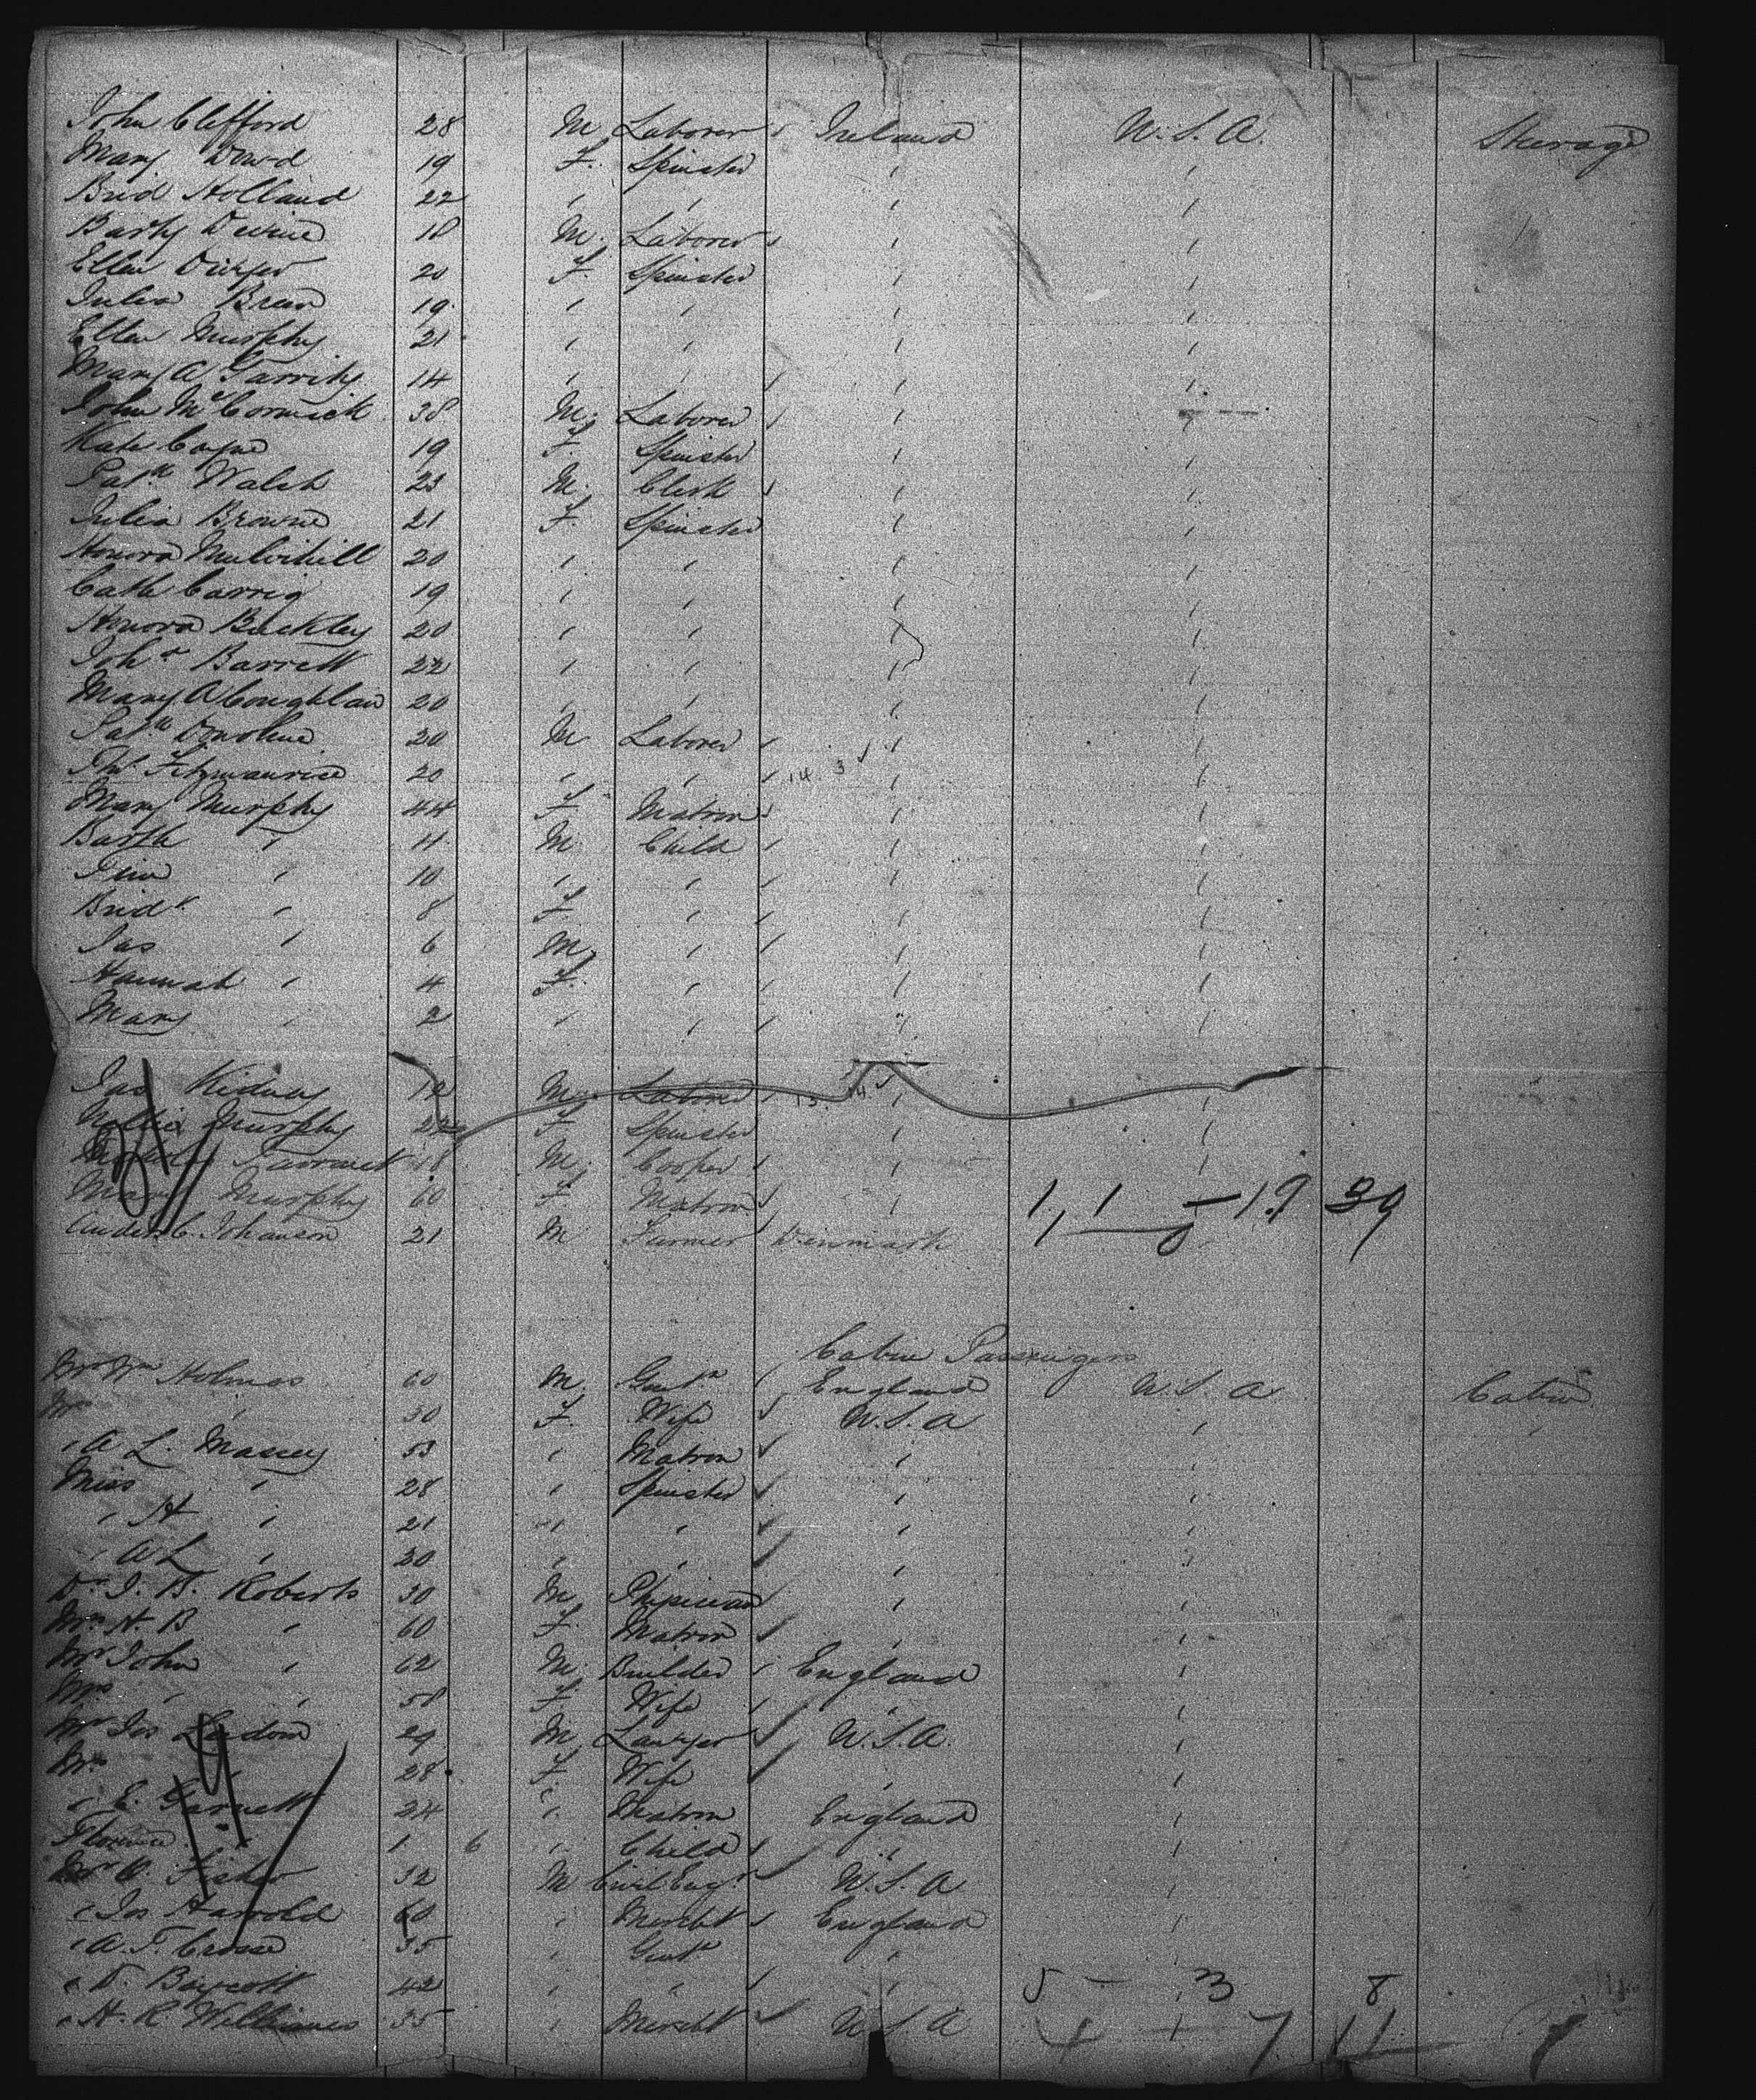 John Clifford 28 M Laborer Ireland U.S.A. Steerage
Mary Dowd 19 F. Spinster " "
Brid Holland 22 " " " "
Barty Devine 18 M. Laborer " "
Ellen Dwyer 20 F. Spinster " "
Julia Breen 19 " " " "
Ellen Murphy 21 " " " "
Mary A Garrity 14 " " " "
John McCormick 38 M. Laborer " "
Kate Coyne 19 F. Spinster " "
Patk Walsh 23 M. Clerk " "
Julia Browne 21 F. Spinster " "
Honora Mulvihill 20 " " " "
Cath Carrig 19 " " " "
Honora Buckley 20 " " " "
Joha Barrett 22 " " " "
Mary A Coughlan 20 " " " "
Patk Donohue 20 M Laborer " "
Ths Fitzmaurice 20 " " 14 3 " "
Mary Murphy 44 F Matron " "
Barth " 11 M Child " "
Tim " 10 " " " "
Bridt " 8 F. " " "
Jas " 6 M " " "
Hannah " 4 F. " " "
Mary " 2 " " " "
Jas Kidney 12 M Laborer 13 14 " "
Nellie Murphy 22 F Spinster " "
18 M. Cooper " "
Mary Murphy 60 F Matron " 1, 1 – 19 39
Anders C. Johanson 21 M Farmer Denmark
31
Cabin Passengers
Mr Wm Holmes 60 M Gentn England U.S.A Cabin
Mrs " 50 F. Wife U.S.A " "
" A L. Massey 53 " Matron " "
Miss " 28 " Spinster " "
" H " 21 " " " "
" A L " 20 " " " "
Dr. J. B. Roberts 30 M Physician " "
Mrs H. B " 60 F. Matron " "
Mr John " 62 M. Builder England "
Mrs " " 58 F Wife " "
Mr Jos 29 M Lawyer U.S.A. "
Mrs " 28 F. Wife " "
" E. Garnett 24 " Matron England "
Florence " 1 6 " Child " "
Mr C. Fisher 32 M Civil Engr U.S.A "
" Jos Harrold 60 " Mercht England "
" A. F. Crosse 35 " Gentn " "
" D. Boycott 42 " " " 5 – 3 8
" H. R. Williams 35 " Mercht U.S.A 4 – 7 11
19